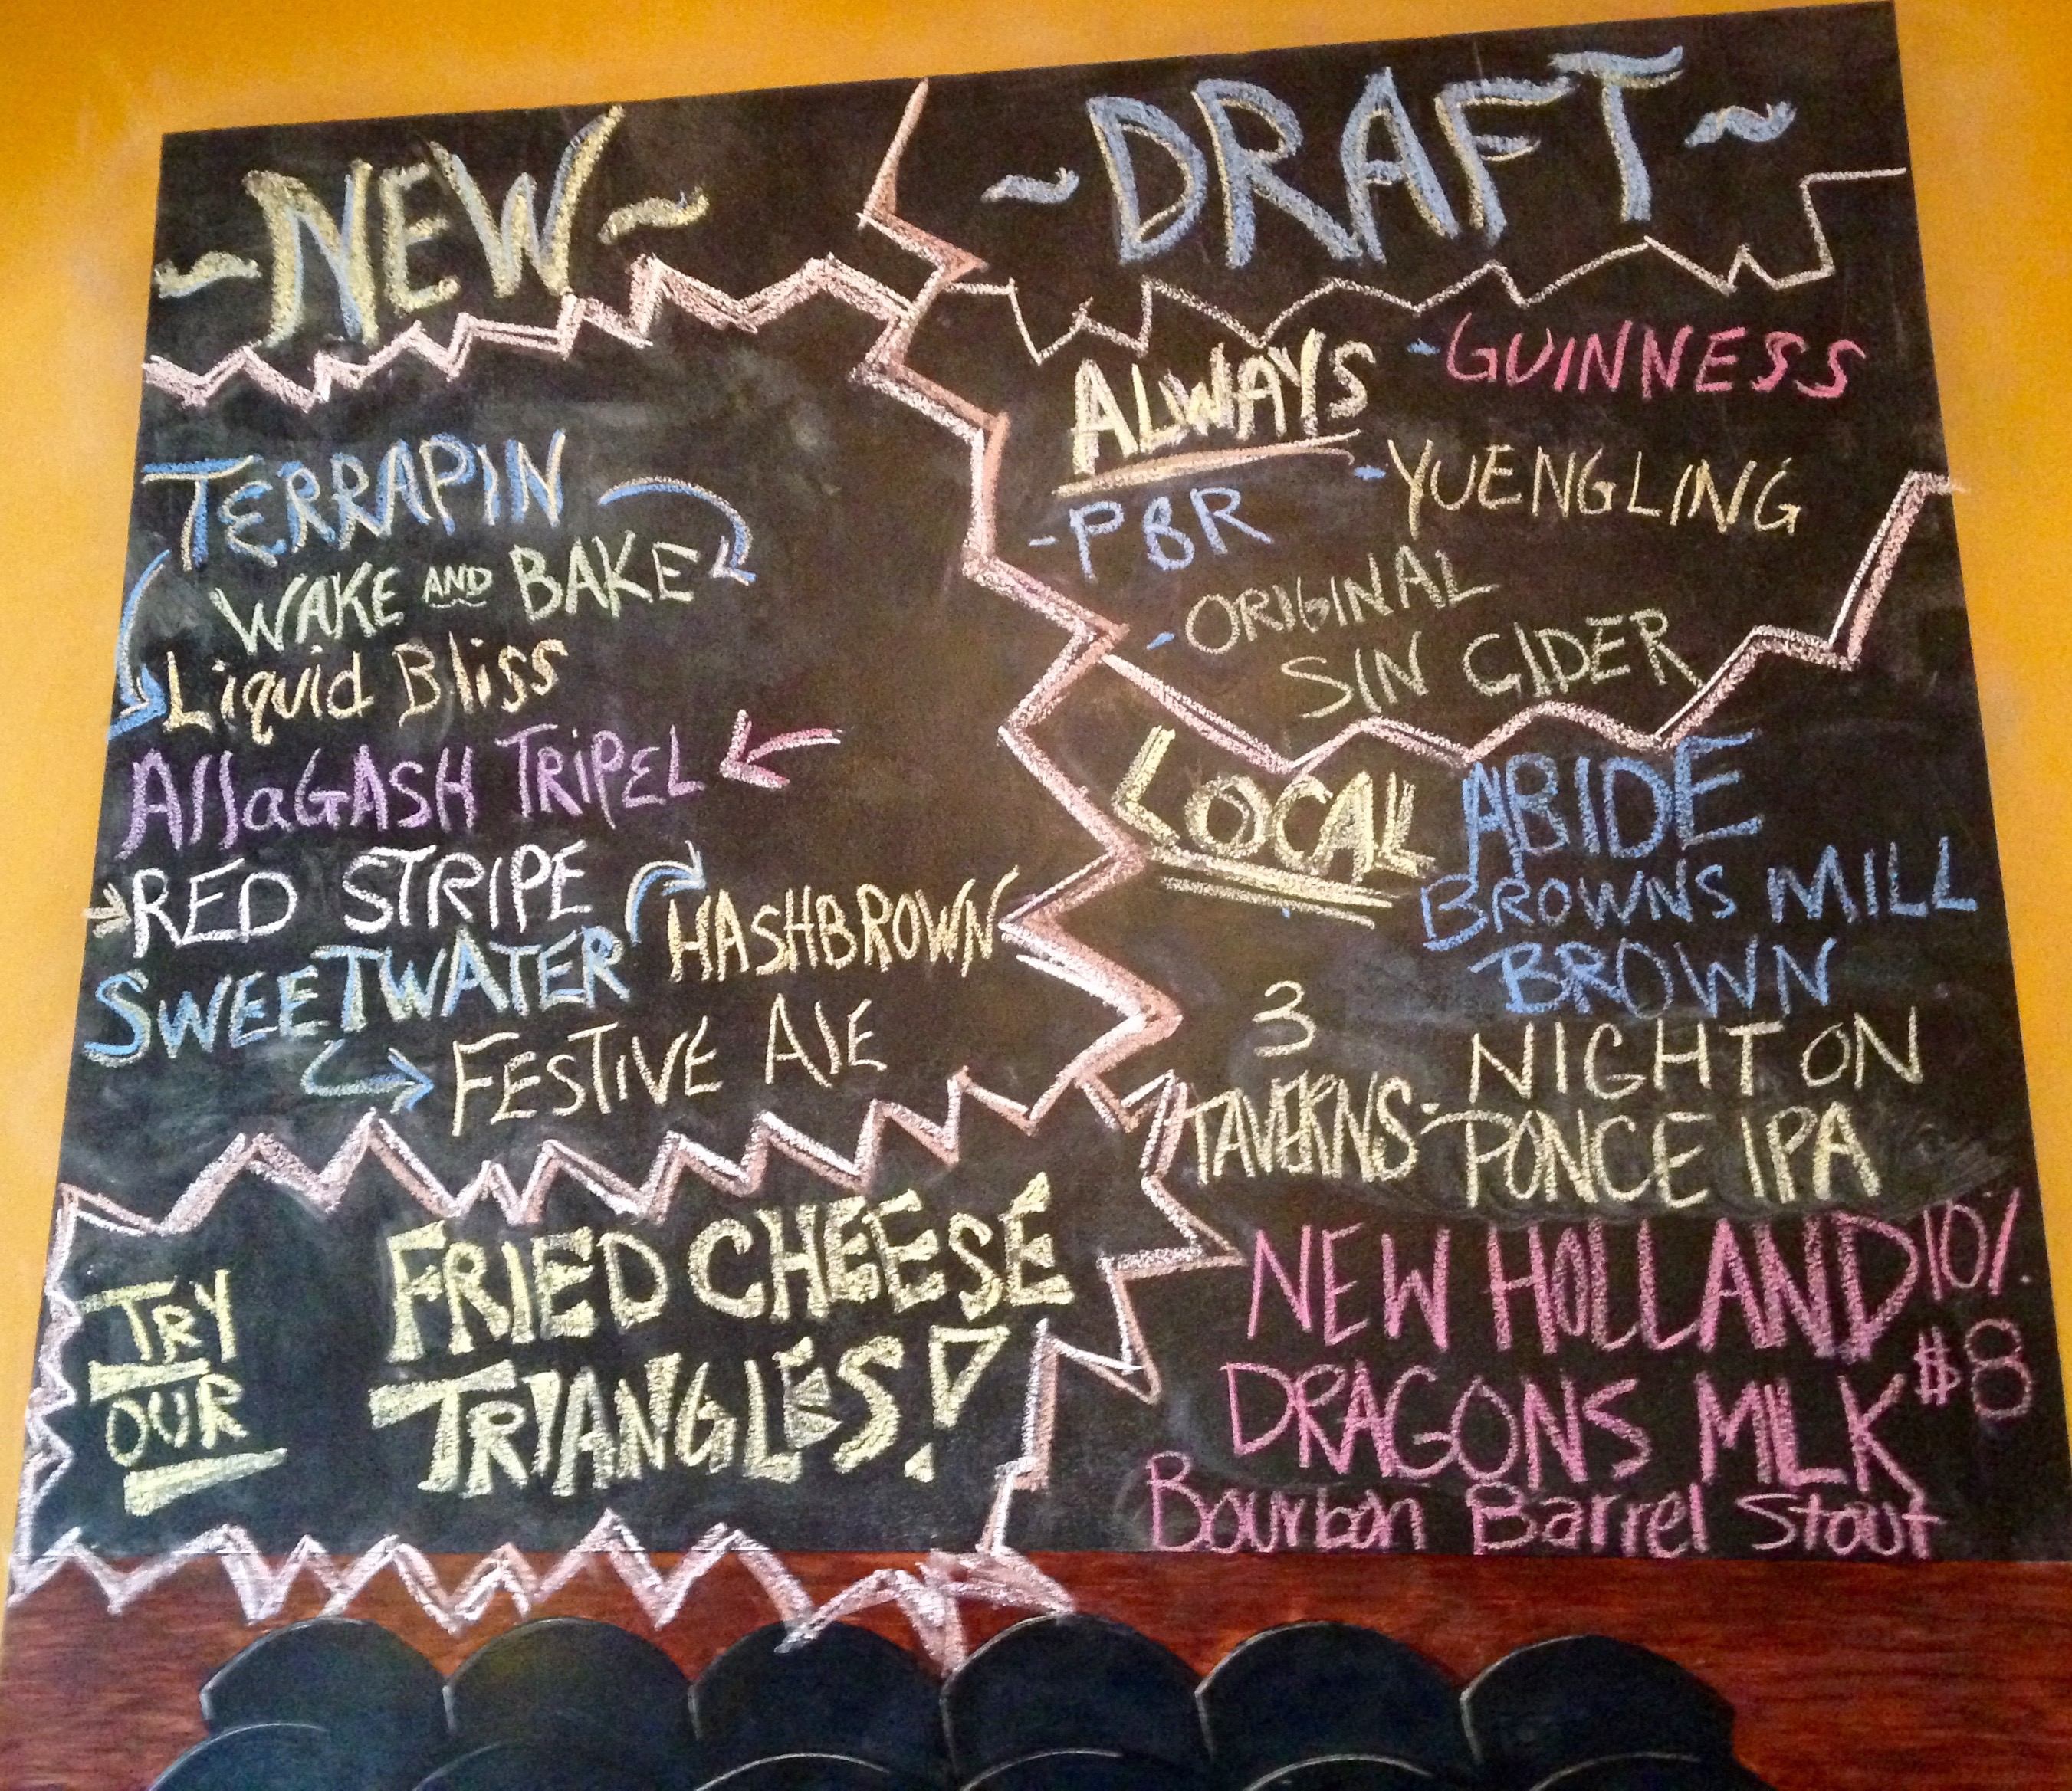 ~NEW~
TERRAPIN
WAKE AND BAKE
Liquid Bliss
AllaGASH TRIPEL
RED STRIPE
SWEETWATER HASHBROWN
FESTIVE AlE
TRY
OUR
FRIED CHEESE
TRIANGLES!
~DRAFT~
ALWAYS
-GUINNESS
-YUENGLING
-PBR
-ORIGINAL
SIN CIDER
LOCAL
ABIDE
BROWNS MILL
BROWN
3
TAVERNS-
NIGHT ON
PONCE IPA
NEW HOLLAND 10%
DRAGONS MLK $8
Bourbon Barrel Stout